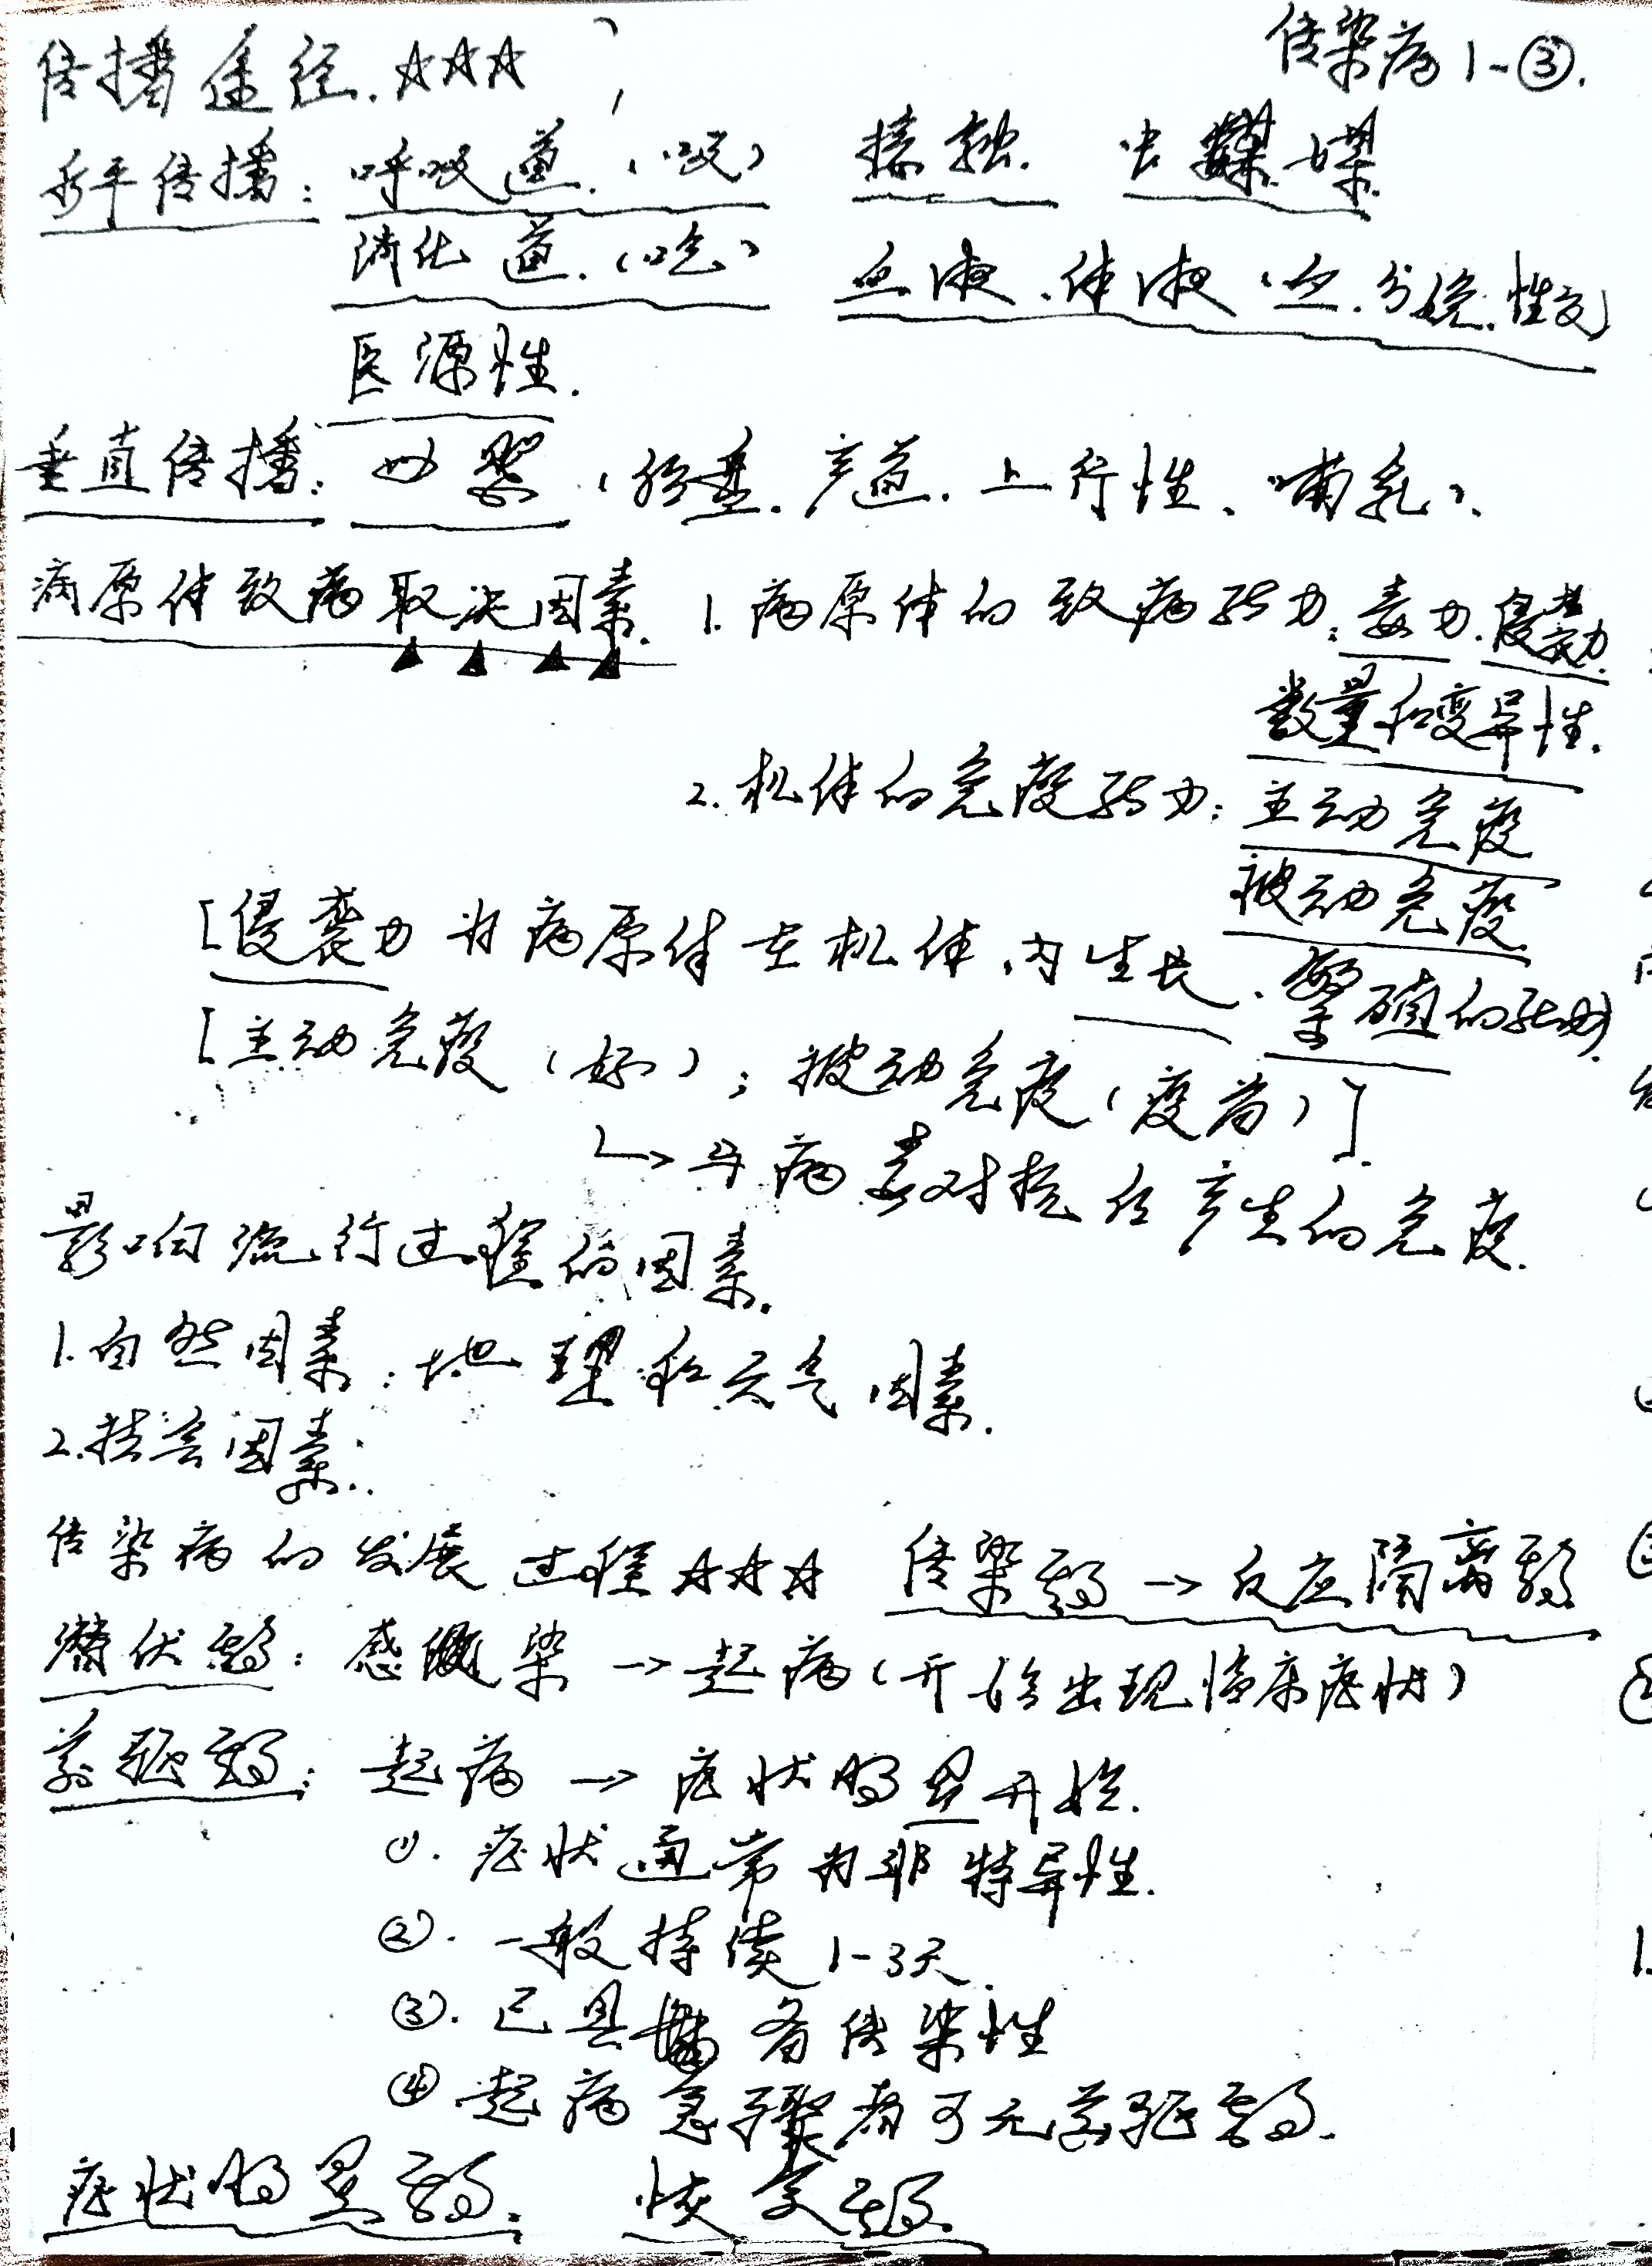 传染病1-③.
传播途径.☆☆☆
水平传播: 呼吸道.(吸) 接触. 虫媒
消化道.(吃) 血液.体液(血.分娩.性交)
医源性.
垂直传播: 母婴(胎盘.产道.上行性、哺乳).
病原体致病取决因素. 1.病原体的致病能力:毒力.侵袭力.
数量和变异性.
2.机体的免疫能力: 主动免疫
被动免疫.
[侵袭力为病原体在机体内生长.繁殖的能力]
[主动免疫(好);被动免疫(疫苗)]
↳与病毒对抗后产生的免疫.
影响流行过程的因素.
1.自然因素:地理和天气因素.
2.社会因素.
传染病的发展过程☆☆☆ 传染期→反应隔离期
潜伏期:感染→起病(开始出现临床症状)
前驱期:起病→症状明显开始.
①.症状通常为非特异性.
②.一般持续1-3天.
③.已具备传染性
④起病急骤者可无前驱期.
症状明显期. 恢复期.